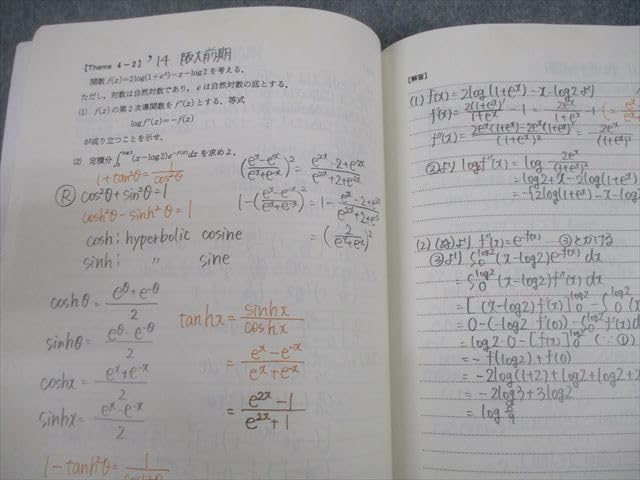 【Theme 4-2】 '14 阪大前期
関数 f(x)=2log(1+eˣ)-x-log2 を考える.
ただし, 対数は自然対数であり, e は自然対数の底とする.
(1) f(x) の第2次導関数を f''(x) とする. 等式
log f''(x)=-f(x)
が成り立つことを示せ.
(2) 定積分 ∫₀^{log2} (x-log2)e^{-f(x)}dx を求めよ.
1+tan²θ = 1/cos²θ
Ⓡ cos²θ+sin²θ=1
cosh²θ-sinh²θ=1
cosh: hyperbolic cosine
sinh: 〃 sine
((eˣ-e⁻ˣ)/(eˣ+e⁻ˣ))² = (e²ˣ-2+e⁻²ˣ)/(e²ˣ+2+e⁻²ˣ)
1-((eˣ-e⁻ˣ)/(eˣ+e⁻ˣ))² = 1-
= (2/(eˣ+e⁻ˣ))²
coshθ = (e^θ+e^-θ)/2
sinhθ = (e^θ-e^-θ)/2
coshx = (eˣ+e⁻ˣ)/2
sinhx = (eˣ-e⁻ˣ)/2
1-tanh²θ =
tanhx = sinhx/coshx
= (eˣ-e⁻ˣ)/(eˣ+e⁻ˣ)
= (e²ˣ-1)/(e²ˣ+1)
【解答】
(1) f(x)=2log(1+eˣ)-x-log2より
f'(x)= 2(1+eˣ)'/(1+eˣ) -1 = 2eˣ/(1+eˣ) -1
f''(x)= (2eˣ(1+eˣ)-2eˣ·eˣ)/(1+eˣ)² = 2eˣ/(1+eˣ)²
②より log f''(x)= log 2eˣ/(1+eˣ)²
= log2+x-2log(1+eˣ)
= -{2log(1+eˣ)-x-log
(2) より f''(x)=e^{-f(x)} ③とかける
③より ∫₀^{log2} (x-log2)e^{-f(x)}
= ∫₀^{log2} (x-log2)f''(x) dx
= [(x-log2)f'(x)]₀^{log2} - ∫₀^{log2} (x
= 0-(-log2 f'(0)) - ∫₀^{log2} f'(x)d
= log2·0-[f(x)]₀^{log2} (∵①)
= -f(log2)+f(0)
= -2log(1+2)+log2+log2+2
= -2log3+3log2
= log 8/9